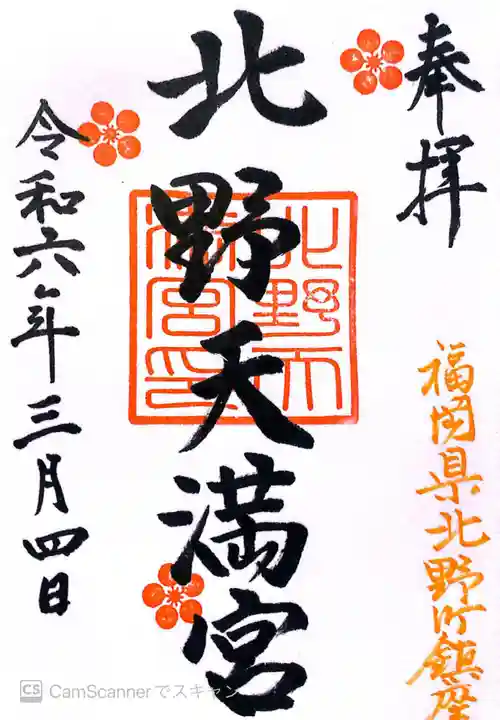 奉拝
福岡県北野町鎮座
北野天満宮
北野天満宮印
令和六年三月四日
CS CamScannerでスキャン